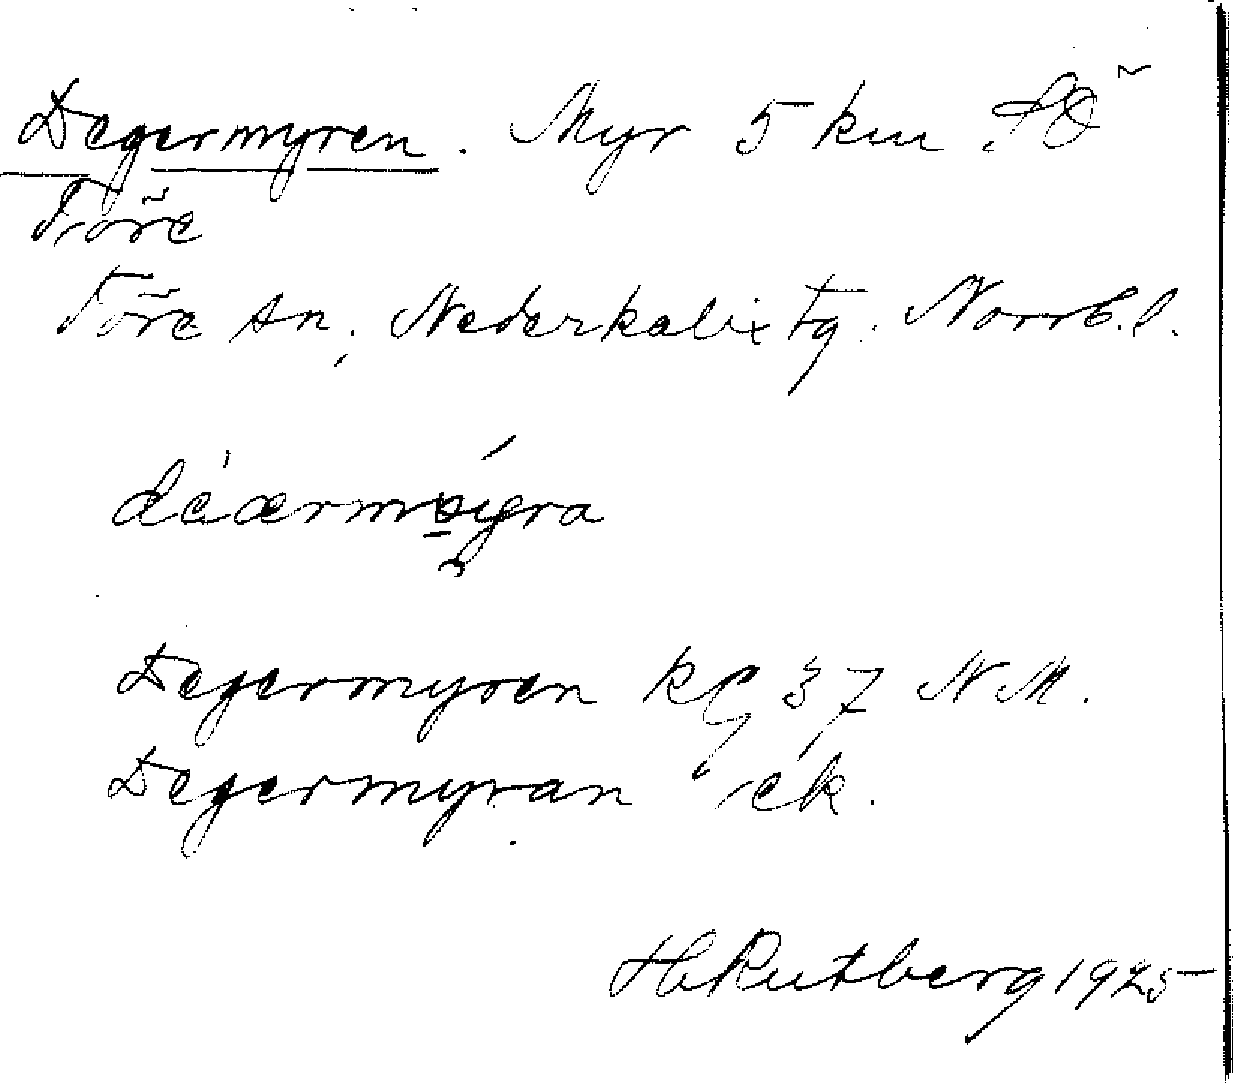 Degermyren. Myr 5 km SÖ
Töre
Töre sn, Nederkalix tg. Norrb.l.
Degermyren kg 37 NM.
Degermyran ek.
H Rutberg 1925